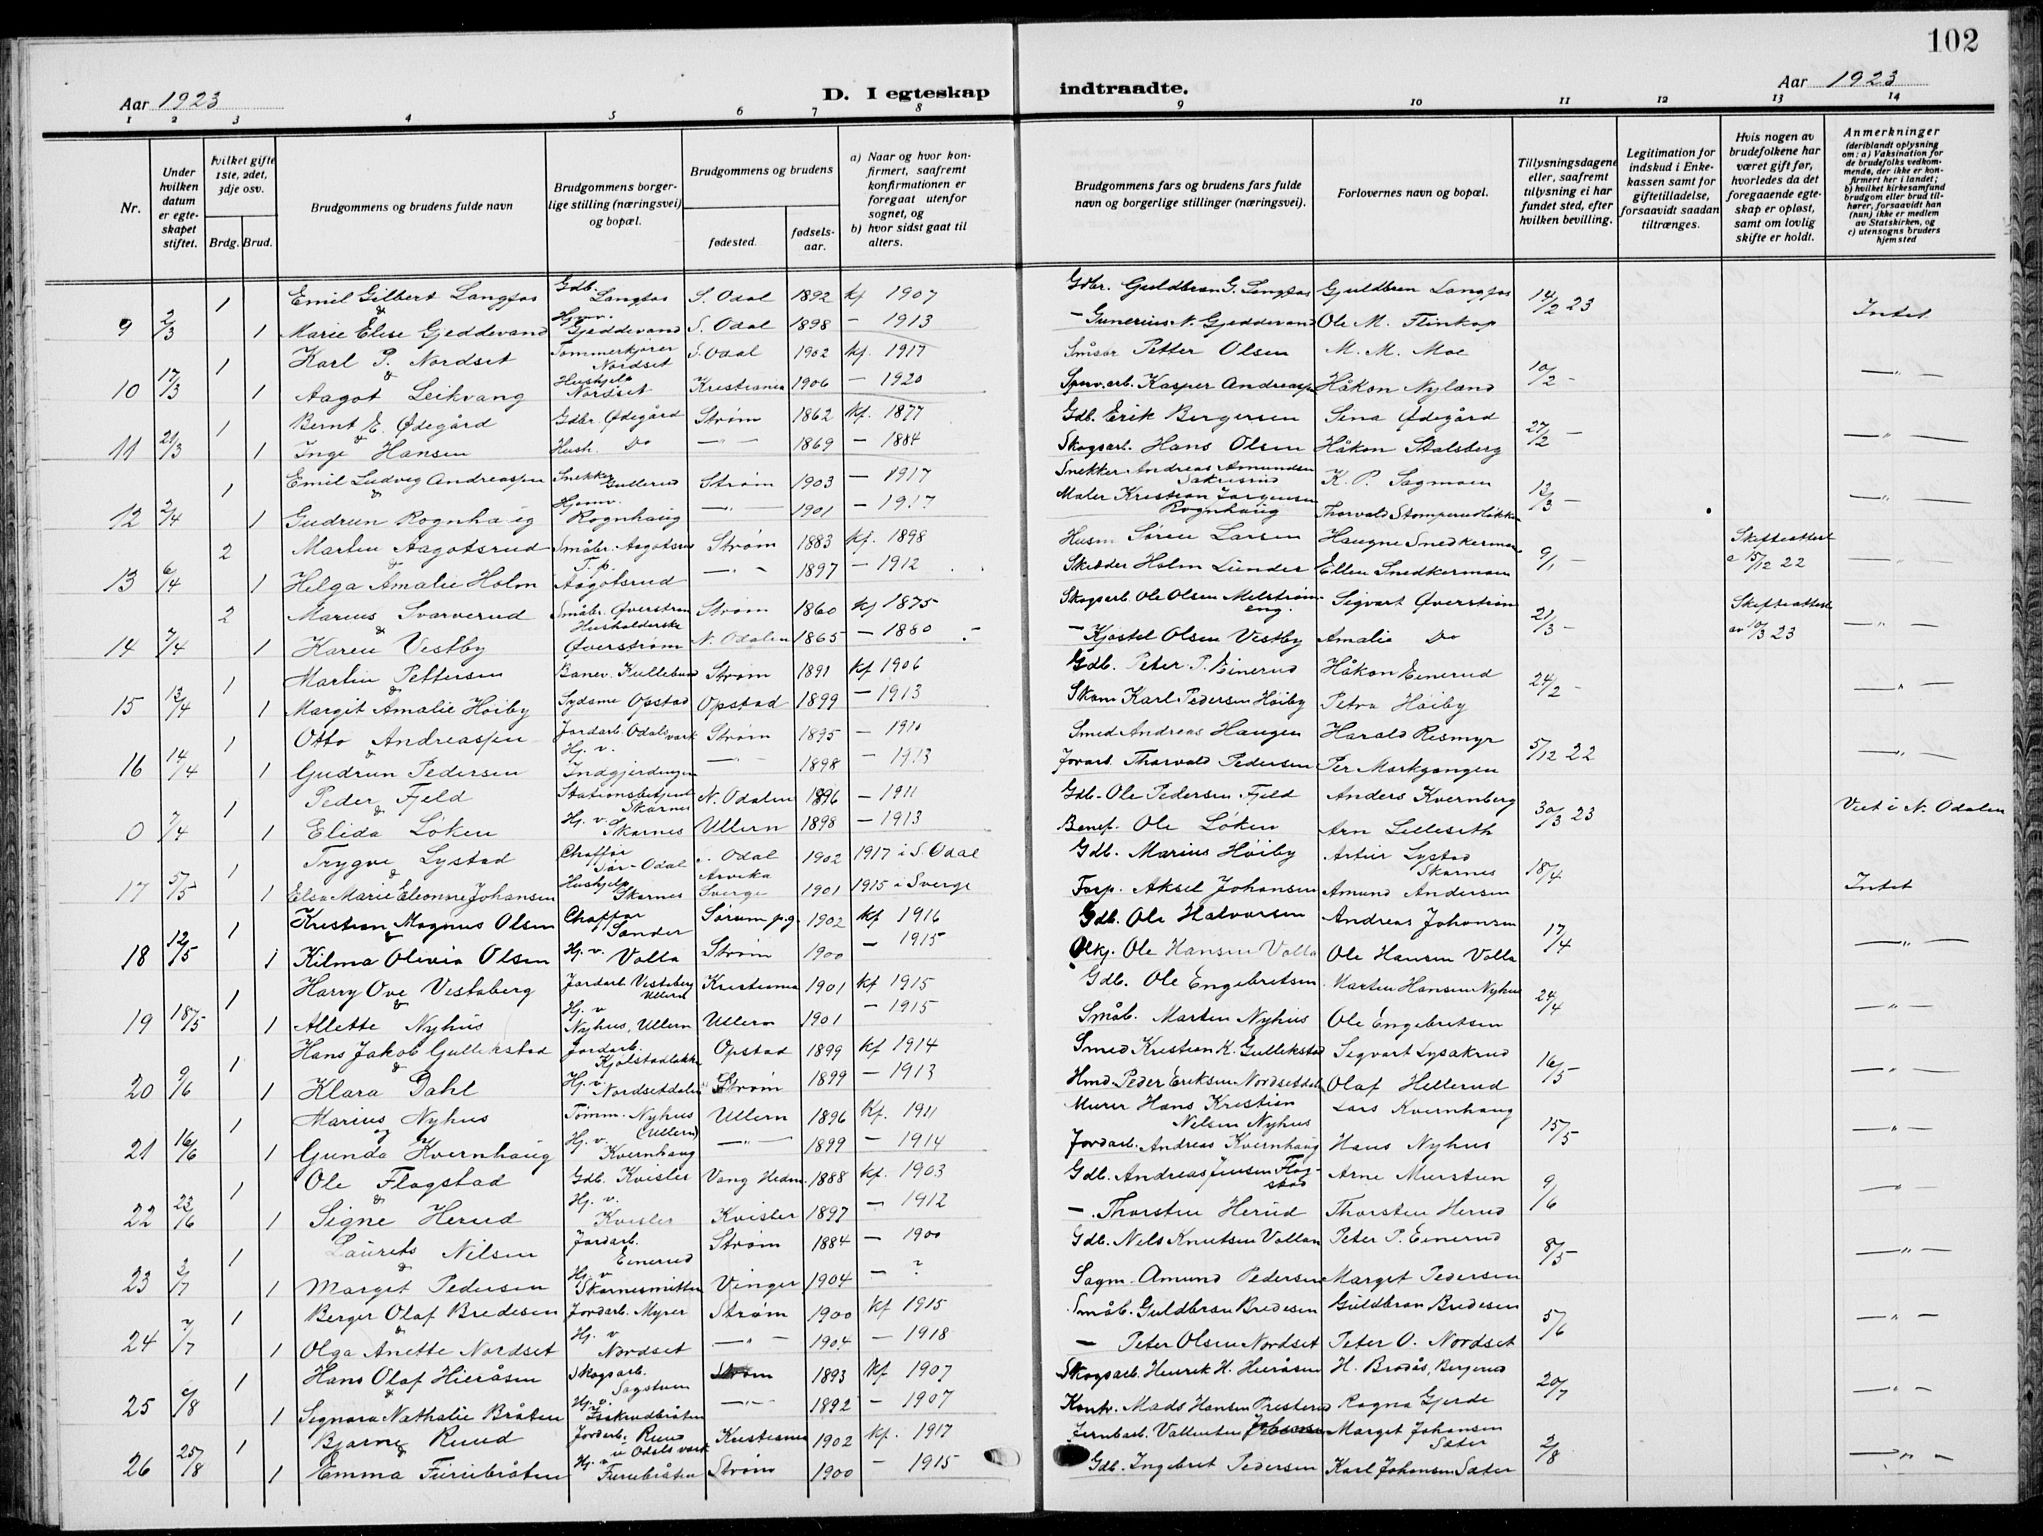 102
Aar 1923 D. I egteskap indtraadte. Aar 1923
1 2 3 4 5 6 7 8 9 10 11 12 13 14
Nr.
Under hvilken datum er egteskapet stiftet.
Hvilket gifte 1ste, 2det, 3dje osv.
Brdg. Brud.
Brudgommens og brudens fulde navn
Brudgommens borgerlige stilling (næringsvei) og bopæl.
Brudgommens og brudens
fødested. fødselsaar.
a) Naar og hvor konfirmert, saafremt konfirmationen er foregaat utenfor sognet, og
b) hvor sidst gaat til alters.
Brudgommens fars og brudens fars fulde navn og borgerlige stillinger (næringsvei).
Forlovernes navn og bopæl.
Tillysningsdagene eller, saafremt tillysning ei har fundet sted, efter hvilken bevilling.
Legitimation for indskud i Enkekassen samt for giftetilladelse, forsaavidt saadan tiltrænges.
Hvis nogen av brudefolkene har været gift før, hvorledes da det foregaaende egteskap er opløst, samt om lovlig skifte er holdt.
Anmerkninger (deriblandt oplysning om: a) Vaksination for de brudefolks vedkommende, der ikke er konfirmert her i landet; b) hvilket kirkesamfund brudgom eller brud tilhører, forsaavidt han (hun) ikke er medlem av Statskirken, og c) utensogns bruders hjemsted
1 Emil Gilbert Langfos Gdb. Langfos S. Odal 1892 kf 1907 Gdbr. Guldbran G. Langfos Guldbren Langfos 14/2 23 Intet
9 2/3 1 Marie Elise Gjeddevand Hjvv. Gjeddevand S. Odal 1898 — 1913 — Gunerius N. Gjeddevand Ole M. Flinkop
1 Karl P. Nordset Tommerkjører Nordset S. Odal 1902 kf. 1917 Småbr Petter Olsen M. M. Moe 10/2 —
10 17/3 1 Aagot Leikvang Hushjelp Nordset Kristiania 1906 — 1920 Sporv.arb. Kasper Andreasen Håkon Nyland
1 Bernt E. Ødegård Gdbr Ødegård Strøm 1862 kf. 1877 Gdb. Erik Bergersen Sina Ødegård 27/2 —
11 21/3 1 Inge Hansen Hush. Do —"— 1869 — 1884 Skogsarb. Hans Olsen Håkon Stalsberg
1 Emil Ludvig Andreassen Snekker Gullerud Strøm 1903 — 1917 Snekker Andreas Amundsen Sakresrud K. P. Sagmoen 13/3 —
12 2/4 1 Gudrun Rognhaug Hjemv. Rognhaug —"— 1901 — 1917 Maler Kristian Jørgensen Rognhaug Thorvald Stomperud
2 Martin Aagotsrud Småbr. Aagotsrud Strøm 1883 kf. 1898 Husm Søren Larsen Haugne Smedkermoen 9/1 — Skifteattest
13 6/4 1 Helga Amalie Holm T. p. Aagotsrud —"— 1897 — 1912 Skredder Holm Lunder Ellen Smedkermoen 15/12 22
2 Marius Svarverud Småbr. Øverstrøm Strøm 1860 kf 1875 Skogsarb. Ole Olsen Melstrømeng. Sigvart Øverstrøm 21/3 — Skifteattest
14 7/4 1 Karen Vestby Husholderske Øverstrøm N. Odalen 1865 — 1880 — Kjøstel Olsen Vestby Amalie Do av 10/3 23
1 Martin Pettersen Banev. Kullebund Strøm 1891 kf 1906 Gdb. Peter P. Einerud Håkon Einerud 24/2 —
15 13/4 1 Margit Amalie Høiby Sydame Opstad Opstad 1899 — 1913 Skom Karl Pedersen Høiby Petra Høiby
1 Otto Andreassen Jordarb. Odals verk Strøm 1895 — 1910 Smed Andreas Haugen Harald Resmyr 5/12 22
16 14/4 1 Gudrun Pedersen Hj. v. Indgjerdingen —"— 1898 — 1913 Jordarb. Thorvald Pedersen Per Markgangen
1 Peder Fjeld Stationsbetjent Skarnes N. Odalen 1896 — 1911 Gdb. Ole Pedersen Fjeld Anders Kvernberg 30/3 23 Viet i N. Odalen
0 7/4 1 Elida Løken Hj. v. Skarnes Ullern 1898 — 1913 Ole Løken Arn Lilleseth
1 Trygve Lystad Chaffør Sør-Odal S. Odal 1902 1917 i S. Odal Gdb. Marius Høiby Artur Lystad Skarnes 18/4 Intet
17 5/5 1 Elsa Marie Eleonore Johansen Hushjelp Skarnes Arvika Sverge 1901 1915 i Sverge Forp. Aksel Johansen Amund Andersen
1 Kristian Magnus Olsen Chaffør Sander Sørum p.g. 1902 kf 1916 Gdb. Ole Halvorsen Andreas Johansen 17/4
18 12/5 1 Kilma Olivia Olsen Hj. v. Volla Strøm 1900 — 1915 Ole Hansen Volla Ole Hansen Volla
1 Harry Ove Vestaberg Jordarb Vestaberg Ullern Kristiania 1901 kf 1915 Gdb. Ole Engebretsen Marten Hansen Nyhus 24/4
19 18/5 1 Allette Nyhus Hj. v Nyhus, Ullern Ullern 1901 — 1915 Småb. Marten Nyhus Ole Engebretsen
1 Hans Jakob Gullikstad Jordarb. Kjølstadløkka Opstad 1899 kf 1914 Smed Kristian K. Gullikstad Segvart Lysakrud 16/5
20 9/6 1 Klara Dahl Hj. v. Nordsetdalen Strøm 1899 — 1913 Hmd. Peder Eriksen Nordsetdalen Olaf Hellerud
1 Marius Nyhus Tømm. Nyhus (Ullern) Ullern 1896 Kf. 1911 Murer Hans Kristian Nelsen Nyhus Lars Kvernhaug 15/5
21 16/6 1 Gunda Kvernhaug Hj. v. Kvernhaug —"— 1899 — 1914 Jordarb. Andreas Kvernhaug Hans Nyhus
1 Ole Flagstad Gdb. Kvisler Vang Hedm. 1888 kf. 1903 Gdb. Andreas Jensen Flagstad Arne Murstun 9/6
22 23/6 1 Signe Herud Hj. v. Kvisler Kvisler 1897 — 1912 — Thorsten Herud Thorsten Herud
1 Laurets Nilsen Jordarb. Einerud Strøm 1884 — 1900 Gdb. Nels Knutsen Vollan Peter P. Einerud 8/5
23 3/7 1 Marget Pedersen Hj. v Skarnesmitten Vinger 1904 — ? Sagm. Amund Pedersen Marget Pedersen
1 Berger Olaf Bredesen Jordarb. Myrer Strøm 1900 kf 1915 Småb. Guldbran Bredesen Guldbran Bredesen 5/6
24 7/7 1 Olga Anette Nordset Hj. v Nordset —"— 1904 — 1918 — Peter Olsen Nordset Peter O. Nordset
1 Hans Olaf Hieråsen Skogsarb. Sagstuen Strøm 1893 kf. 1907 Skogsarb. Henrek H. Hieråsen H. Brodås, Bergerud 20/7
25 6/8 1 Segnora Nathalie Bråten Hj. v. Isakrudbråten —"— 1892 — 1907 Kontr. Mads Hansen Presterud Ragna Gjerde
1 Bjarne Ruud Jordarb. Ruud i Odals verk Kristiania 1902 kf. 1917 Jernbarb. Vallenten Johansen Marget Johansen Sæter 2/8
26 25/8 1 Emma Furubråten Hj. v. Furubråten Strøm 1900 — 1915 Gdb. Ingebret Pedersen Karl Johansen Sæter